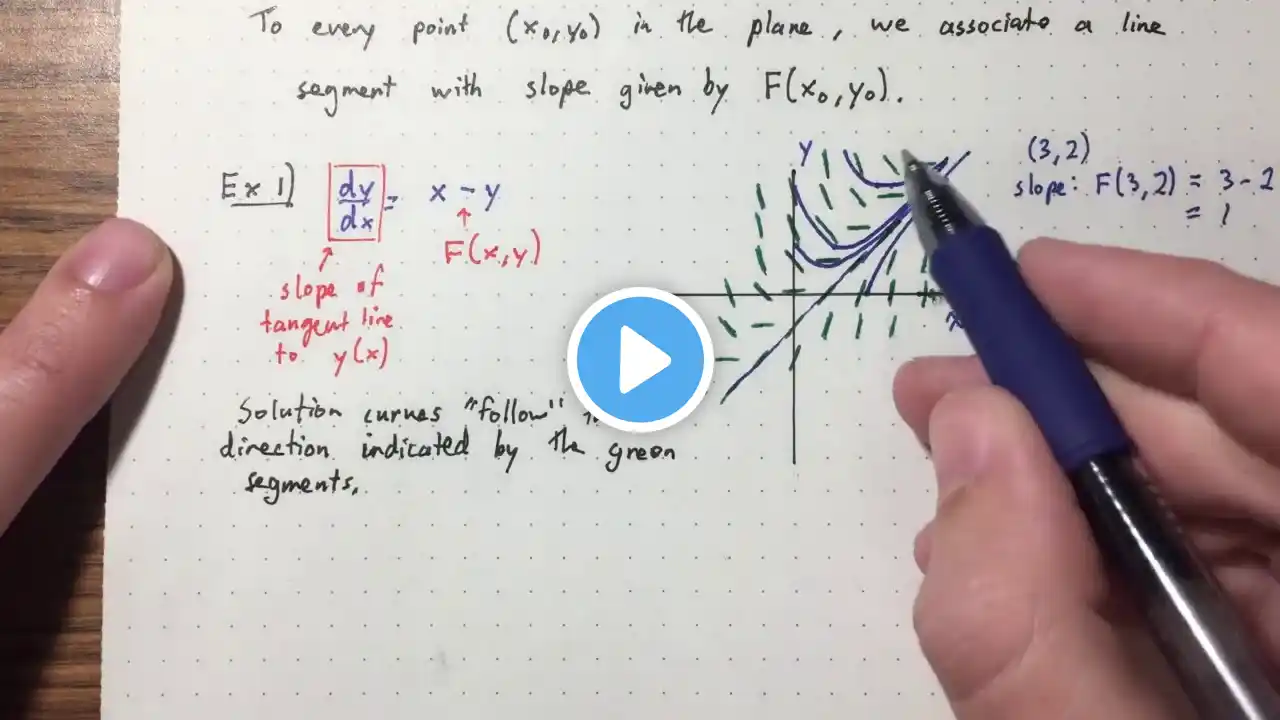 To every point (x₀, y₀) in the plane, we associate a line
segment with slope given by F(x₀, y₀).
Ex 1) dy/dx = x - y
↑
F(x,y)
↗
slope of
tangent line
to y(x)
Solution curves "follow"
direction indicated by the green
segments.
y
x
(3,2)
slope: F(3,2) = 3-2
= 1